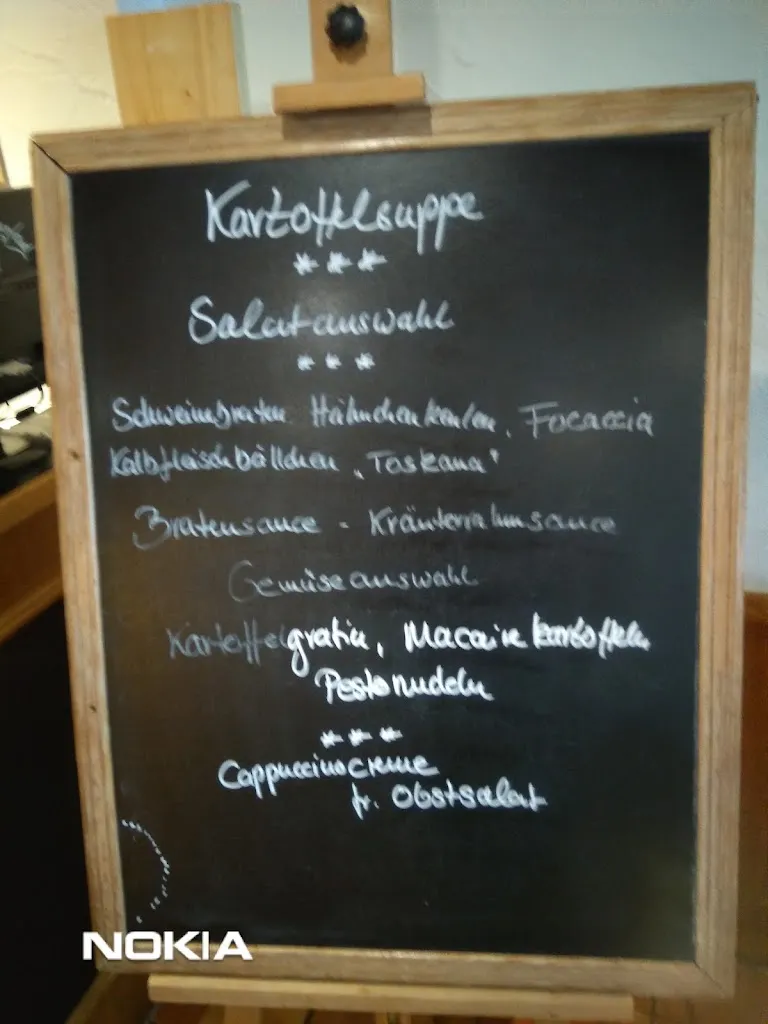 Kartoffelsuppe
***
Salatauswahl
***
Schweinebraten Hähnchenkeulen, Focaccia
Kalbfleischbällchen „Toskana"
Bratensauce - Kräuterrahmsauce
Gemüseauswahl
Kartoffelgratin, Macairekartoffeln
Pestonudeln
***
Cappuccinocreme
fr. Obstsalat
NOKIA